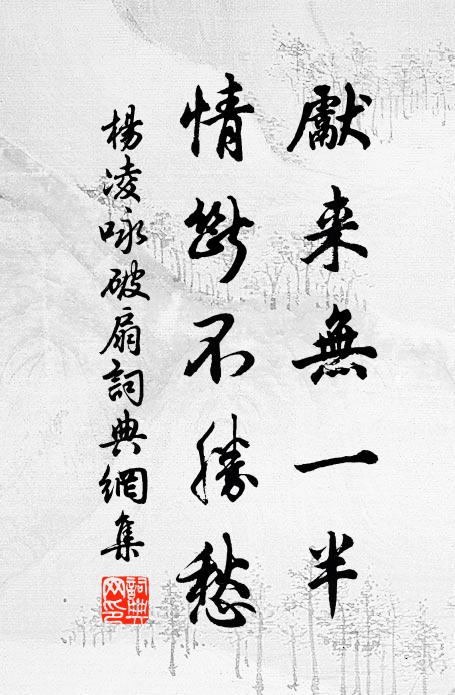 獻来無一半
情斷不勝愁
楊凌咏破扇詞典網集
詞典網印